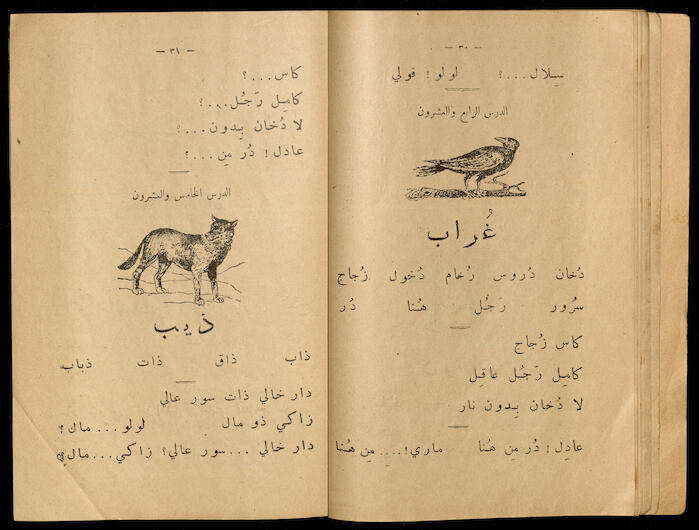 — ٣٠ —
سِلال ...؟ لولو! قولي
الدرس الرابع والعشرون
غُراب
دُخان دُروس رُخام دُخول زُجاج
سُرُور رَجُل هُنا دُر
كاس زُجاج
كامِل رَجُل عاقِل
لا دُخان بِدون نار
عادِل! دُر مِن هُنا ماري! .... مِن هُنا
— ٣١ —
كاس ...؟
كامِل رَجُل ...؟
لا دُخان بِدون ...؟
عادِل! دُر مِن ...؟
الدرس الخامس والعشرون
ذيب
ذاب ذاق ذات ذباب
دار خالي ذات سور عالي
زاكي ذو مال لولو ... ماك؟
دار خالي ... سور عالي؟ زاكي ... مال؟